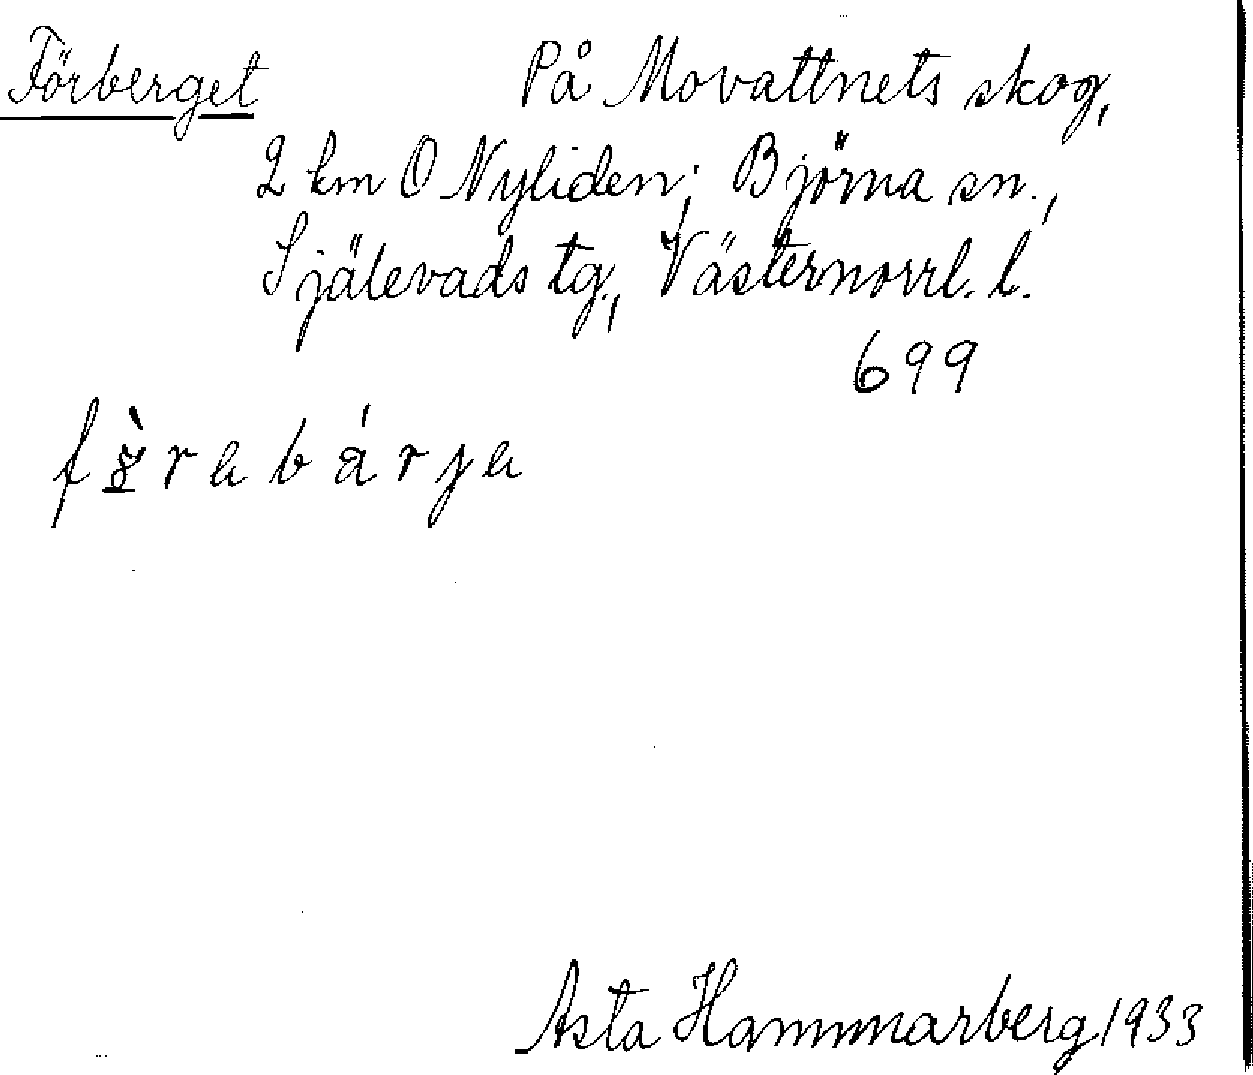 Förberget På Movattnets skog,
2 km O Nyliden; Björna sn.,
Själevads tg, Västernorrl. l.
699
Asta Hammarberg 1933